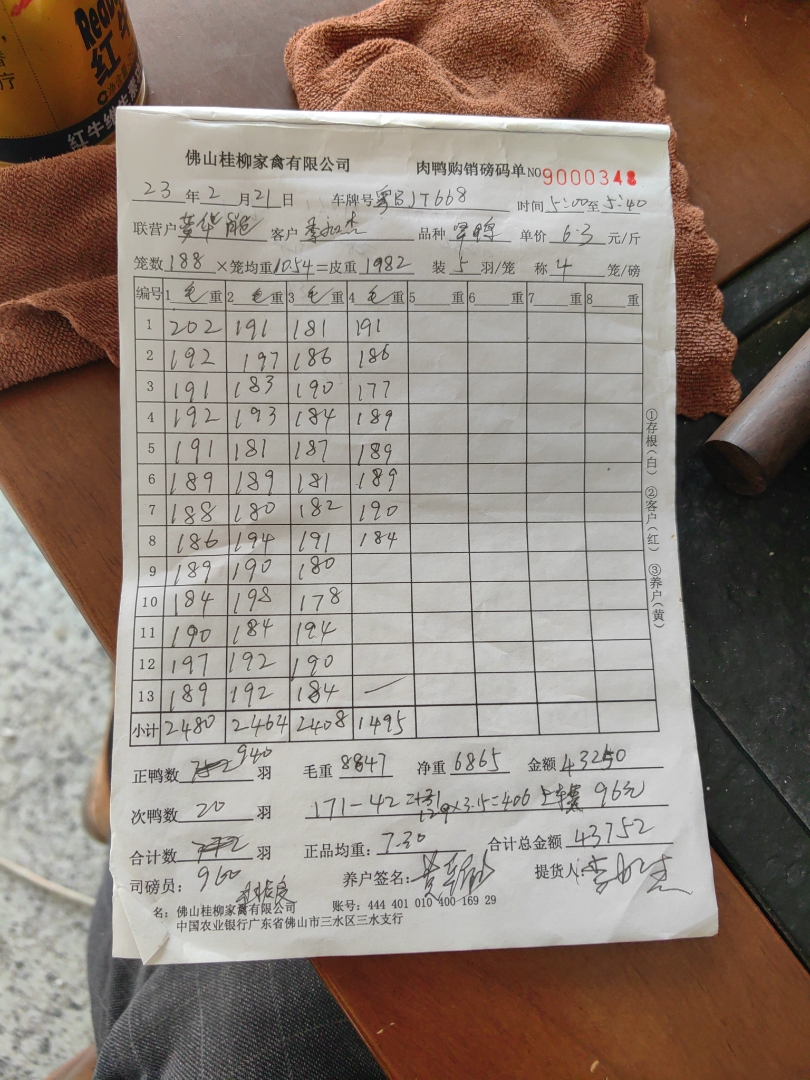 红牛维
佛山桂柳家禽有限公司 肉鸭购销磅码单 NO 9000348
23 年 2 月 21 日 车牌号 粤BJT668 时间 5:00 至 5:40
联营户 黄华 客户 李 品种 单价 6.3 元/斤
笼数 188 ×笼均重 10.54 =皮重 1982 装 5 羽/笼 称 4 笼/磅
编号 1 毛 重 2 毛 重 3 毛 重 4 毛 重 5 重 6 重 7 重 8 重
1 202 191 181 191
2 192 197 186 186
3 191 183 190 177
4 192 193 184 189
5 191 181 187 189
6 189 189 181 189
7 188 180 182 190
8 186 194 191 184
9 189 190 180
10 184 198 178
11 190 184 194
12 197 192 190
13 189 192 184 —
小计 2480 2464 2408 1495
①存根(白) ②客户(红) ③养户(黄)
正鸭数 940 羽 毛重 8847 净重 6865 金额 43250
次鸭数 20 羽 171-42 129×3.15=406 96元
合计数 羽 正品均重: 7.30 合计总金额 43752
司磅员: 960 养户签名: 提货人:
名: 佛山桂柳家禽有限公司 账号: 444 401 010 400 169 29
中国农业银行广东省佛山市三水区三水支行